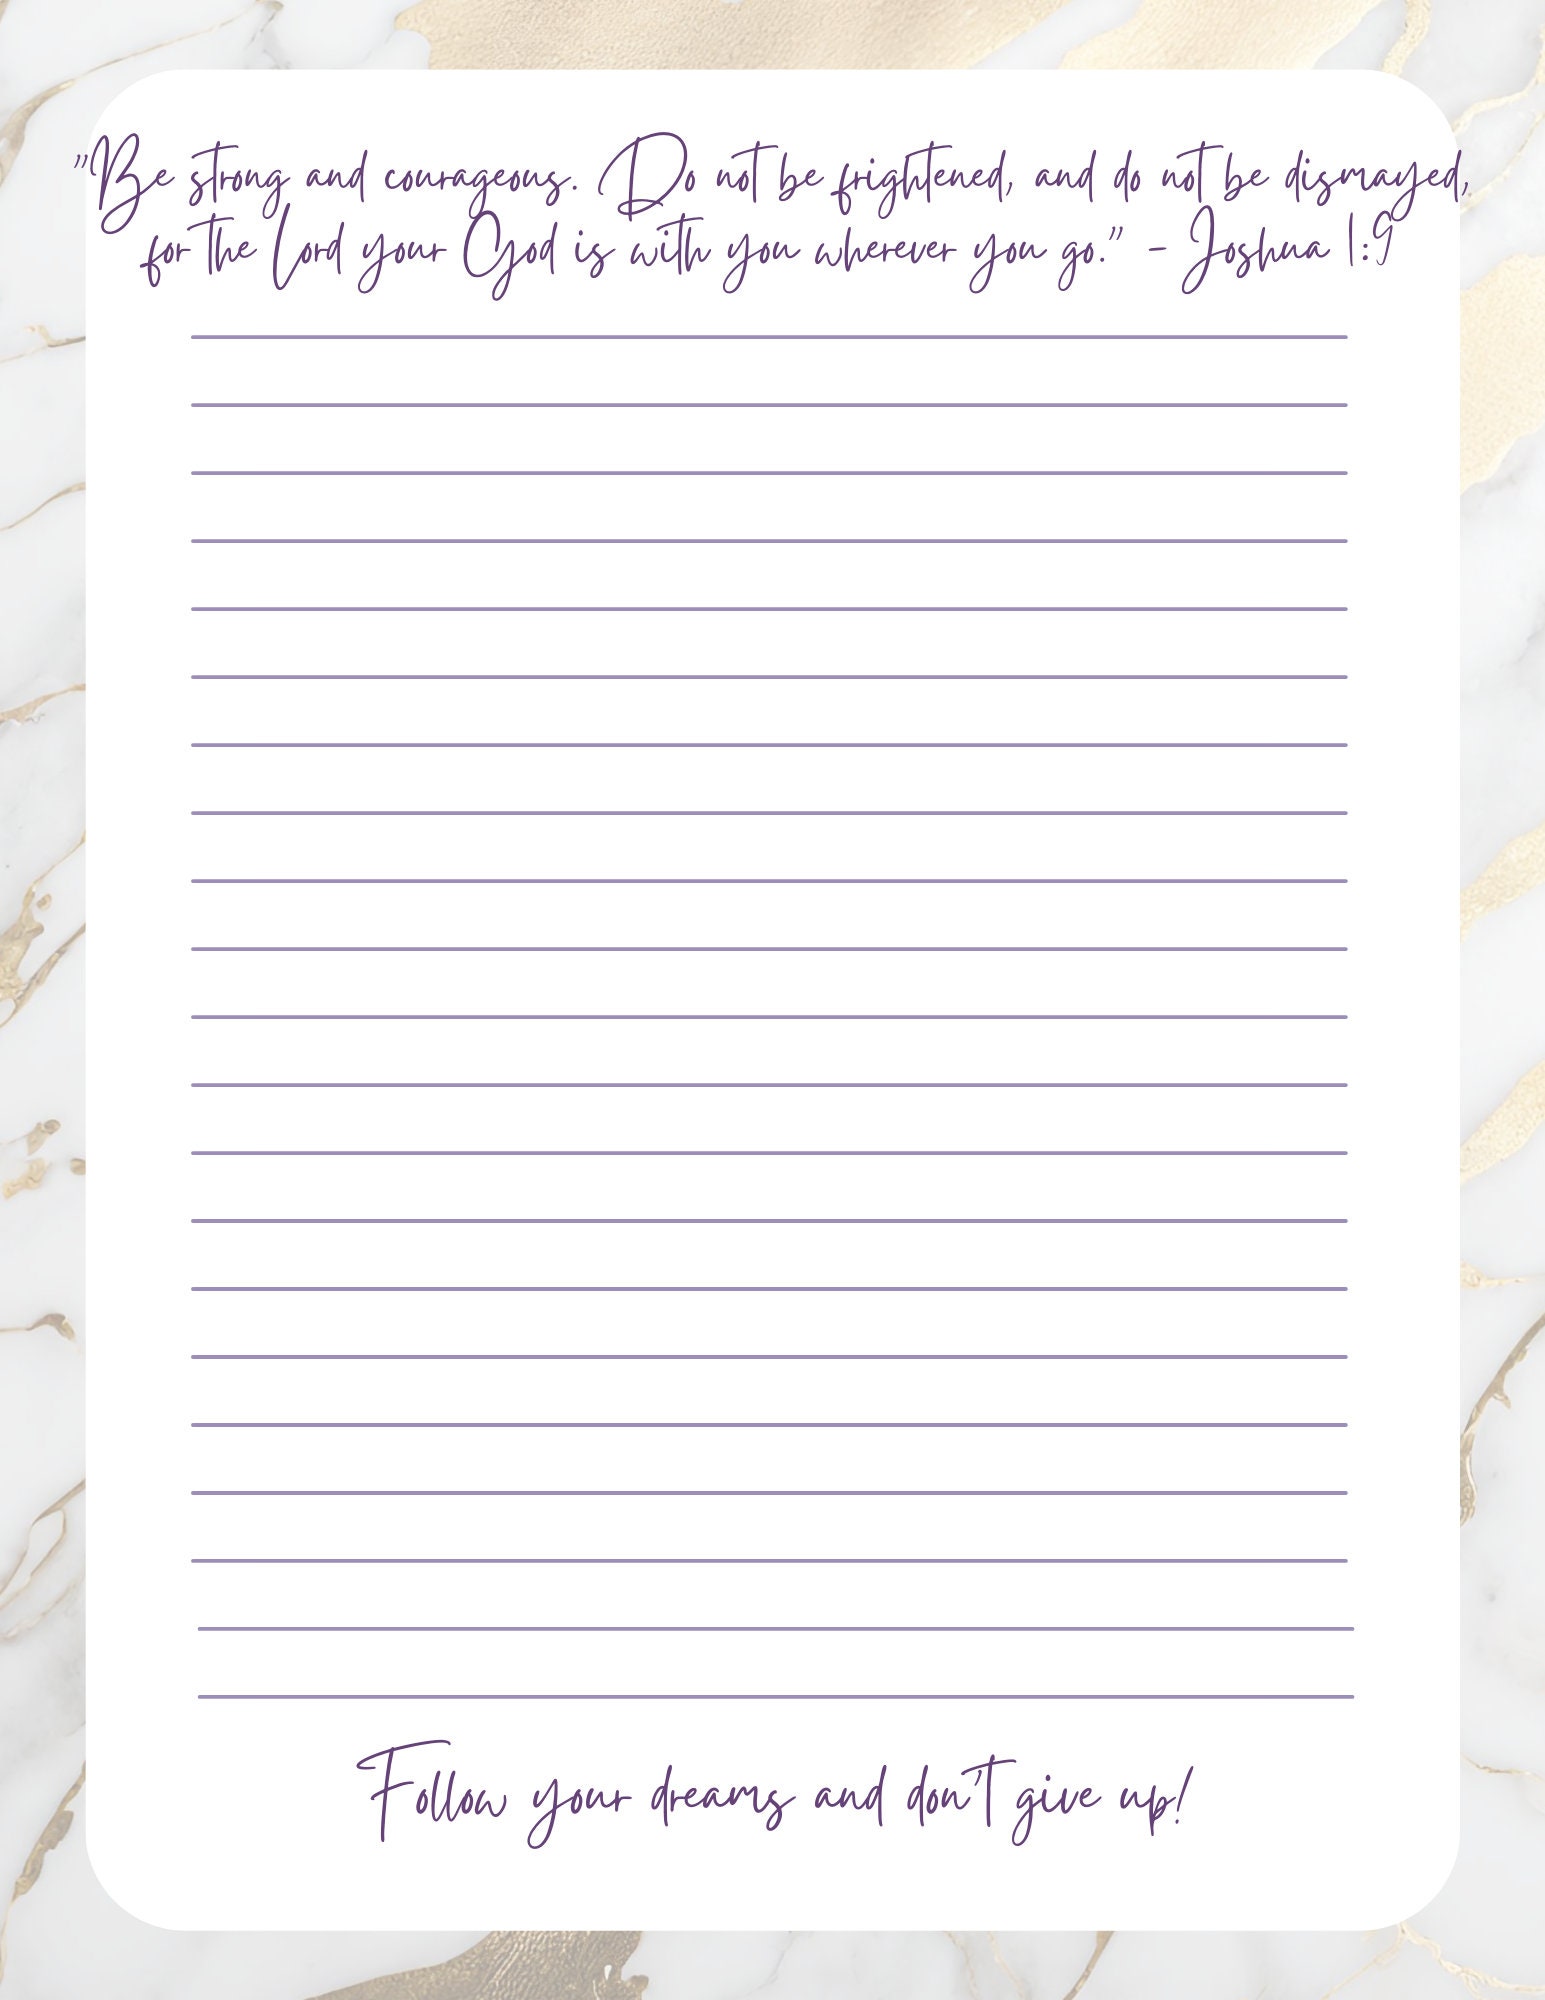 "Be strong and courageous. Do not be frightened, and do not be dismayed,
for the Lord your God is with you wherever you go." - Joshua 1:9
Follow your dreams and don't give up!